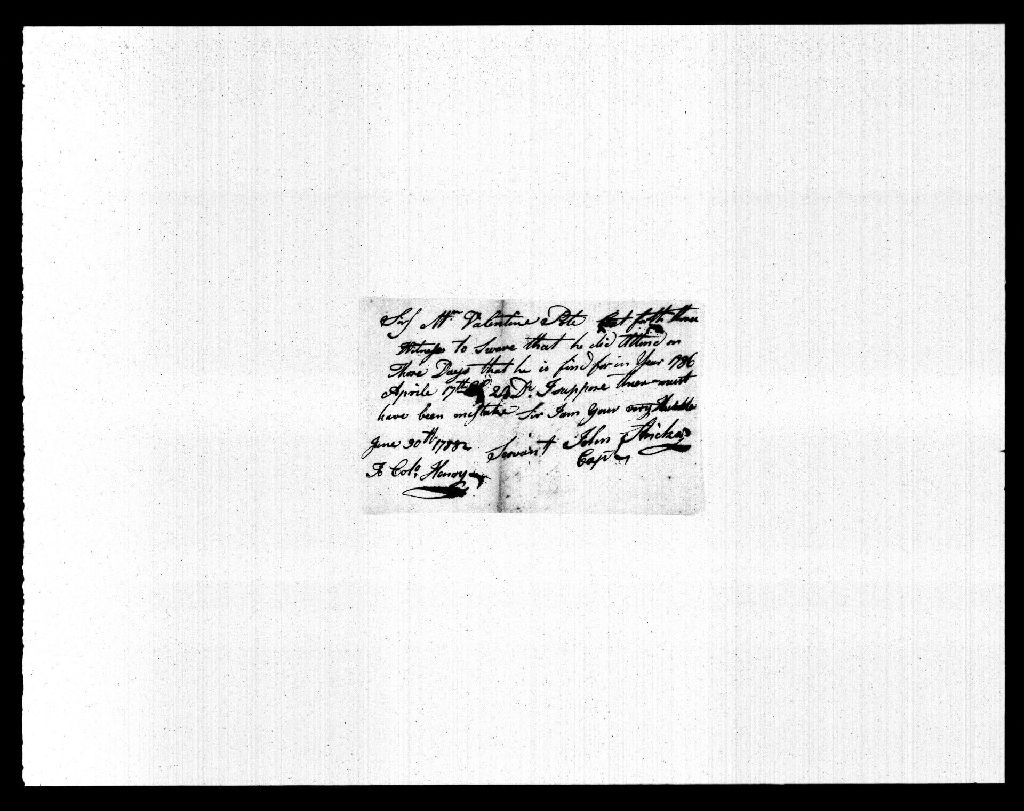 Sir Mr. Valentine Pete forth three
Witness to Sware that he did Attend on
Those Days that he is find for in Year 1786
Aprile 17th 24 Do. I suppose there must
have been mistake Sir I am Your very Humble
June 30th 1788 Servant John Stricka
To Colo. Henry Capt.